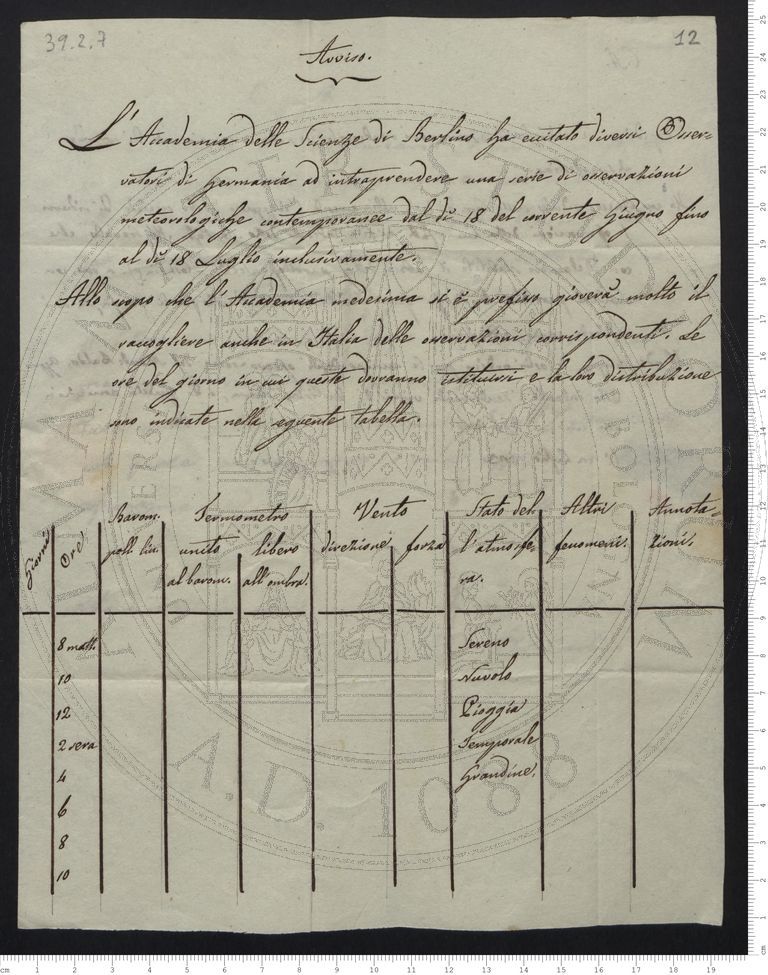 39.2.7
12
Avviso.
L'Accademia delle Scienze di Berlino ha eccitato diversi Osser=
vatori di Germania ad intraprendere una serie di osservazioni
meteorologiche contemporanee dal dì 18 del corrente Giugno fino
al dì 18 Luglio inclusivamente.
Allo scopo che l'Accademia medesima si è prefisso gioverà molto il
raccogliere anche in Italia delle osservazioni corrispondenti. Le
ore del giorno in cui queste dovranno istituirsi e la loro distribuzione
sono indicate nella seguente tabella.
Giorni
Ore
Barom.
poll. lin.
Termometro
unito
al barom.
libero
all'ombra.
Vento
direzione
forza
Stato del
l'atmosfe-
ra.
Altri
fenomeni.
Annota-
zioni.
8 matt.
Sereno
10
Nuvolo
12
Pioggia
2 sera
Temporale
4
Grandine.
6
8
10
A.D. 1088